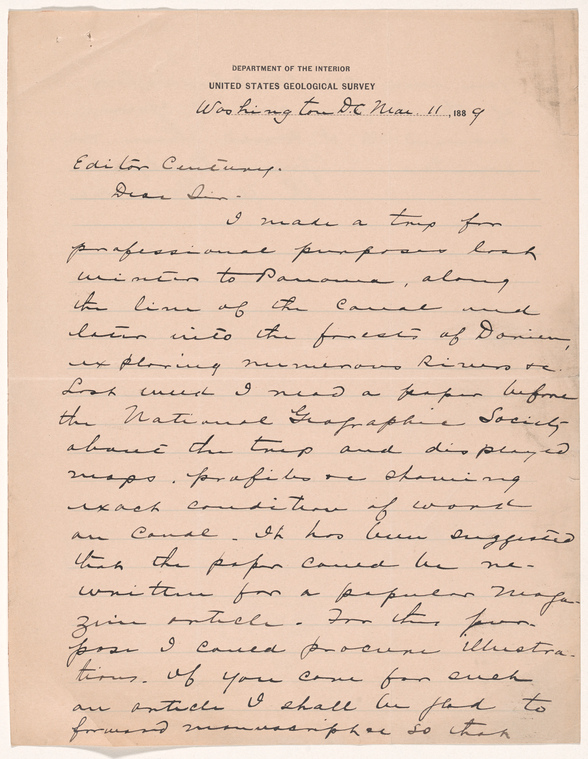 DEPARTMENT OF THE INTERIOR
UNITED STATES GEOLOGICAL SURVEY
Washington D.C. Mar. 11, 1889
Editor Century.
Dear Sir-
I made a trip for
professional purposes last
winter to Panama, along
the line of the canal and
later into the forests of Darien,
exploring numerous rivers &c.
Last week I read a paper before
the National Geographic Society
about the trip and displayed
maps, profiles &c showing
exact condition of work
on Canal. It has been suggested
that the paper could be re-
written for a popular Maga-
zine article. For this pur-
pose I could procure illustra-
tions. If you care for such
an article I shall be glad to
forward manuscript &c so that